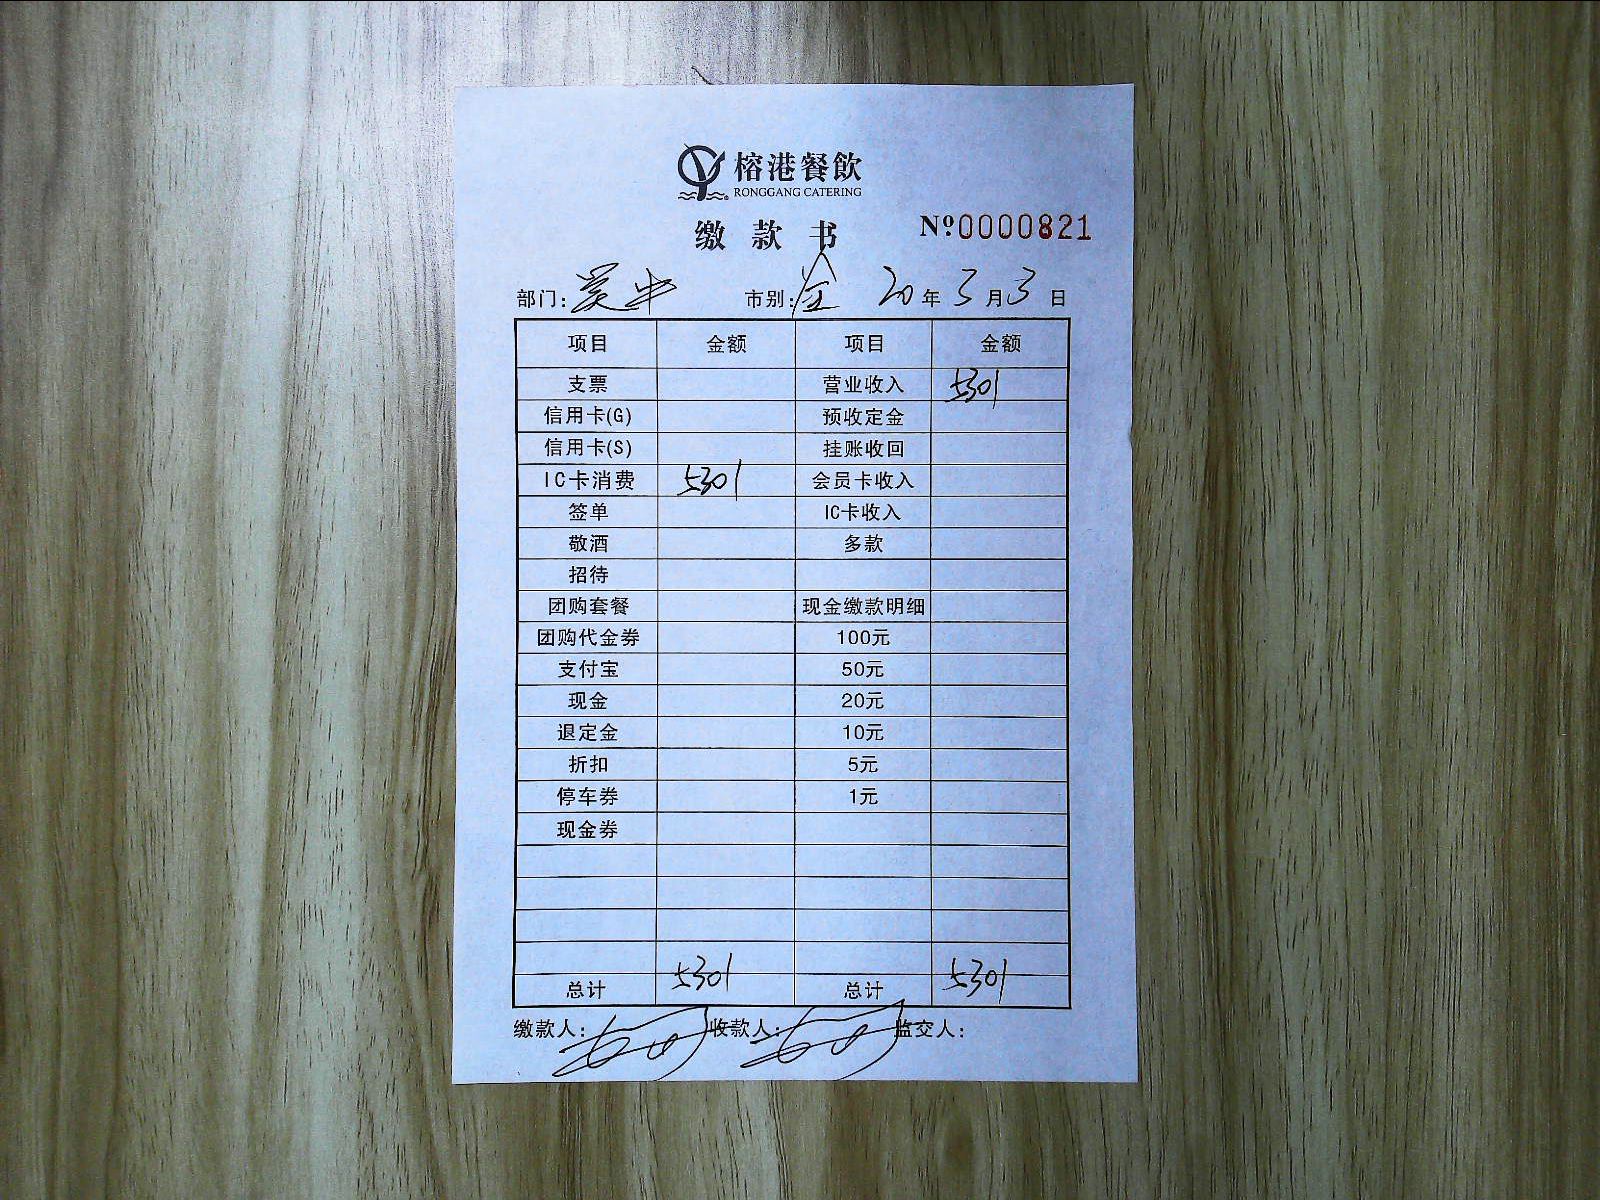 榕港餐飲
RONGGANG CATERING
缴款书 Nº0000821
部门: 市别:全 20年3月3日
项目 金额 项目 金额
支票 营业收入 5301
信用卡(G) 预收定金
信用卡(S) 挂账收回
IC卡消费 5301 会员卡收入
签单 IC卡收入
敬酒 多款
招待
团购套餐 现金缴款明细
团购代金券 100元
支付宝 50元
现金 20元
退定金 10元
折扣 5元
停车券 1元
现金券
总计 5301 总计 5301
缴款人: 收款人: 监交人: